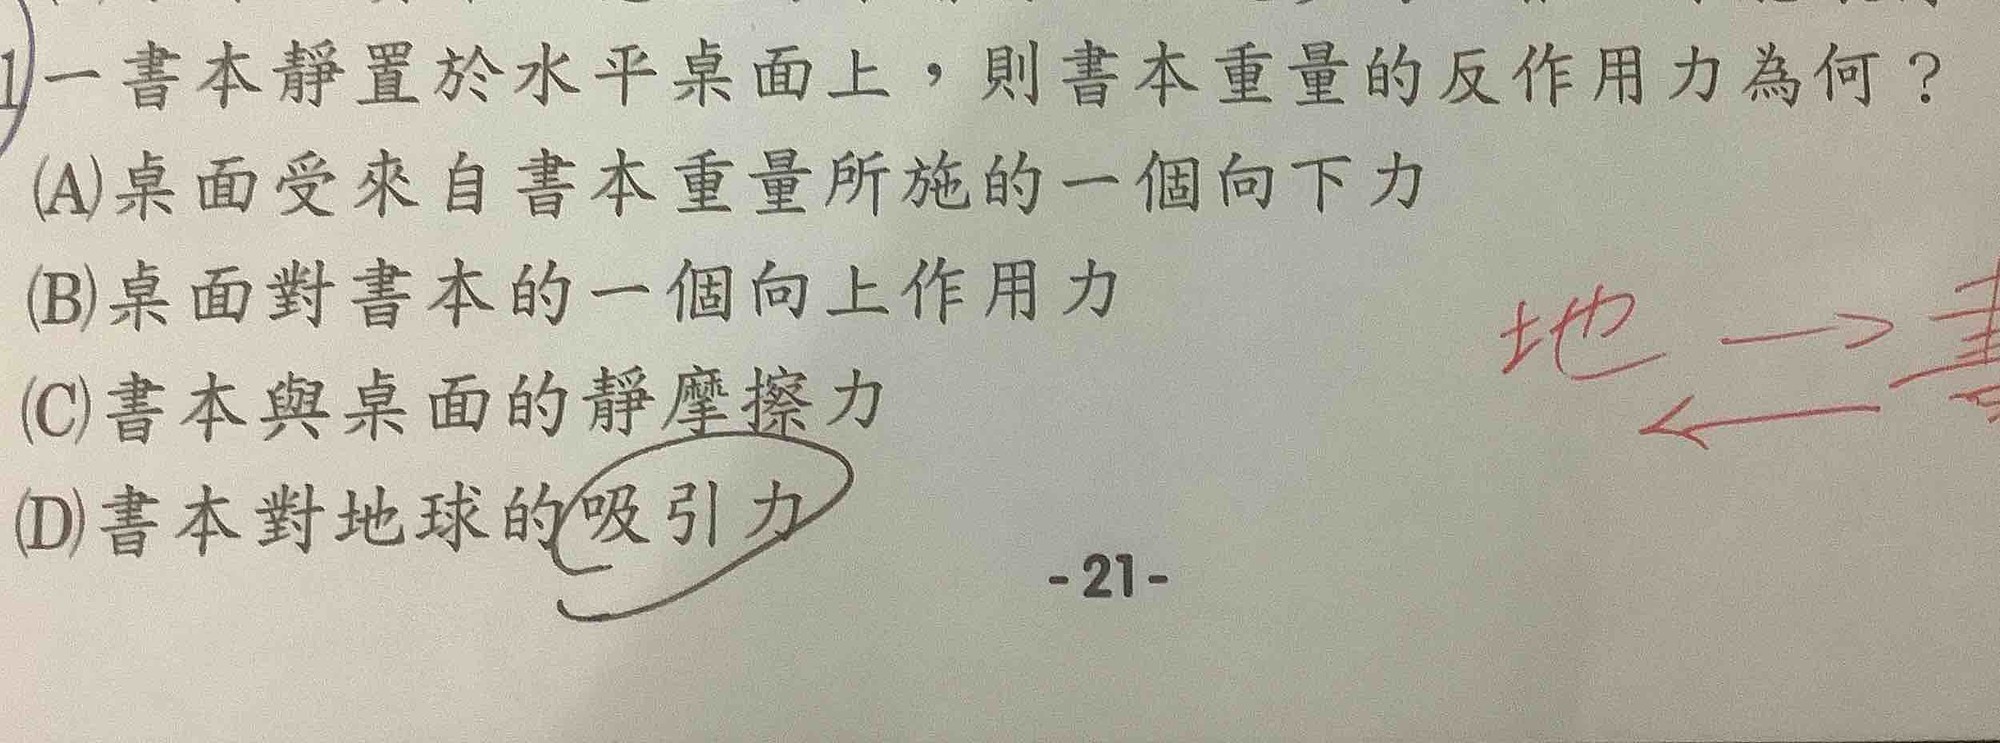 一書本靜置於水平桌面上，則書本重量的反作用力為何？
(A)桌面受來自書本重量所施的一個向下力
(B)桌面對書本的一個向上作用力
(C)書本與桌面的靜摩擦力
(D)書本對地球的吸引力
地→書
←
-21-